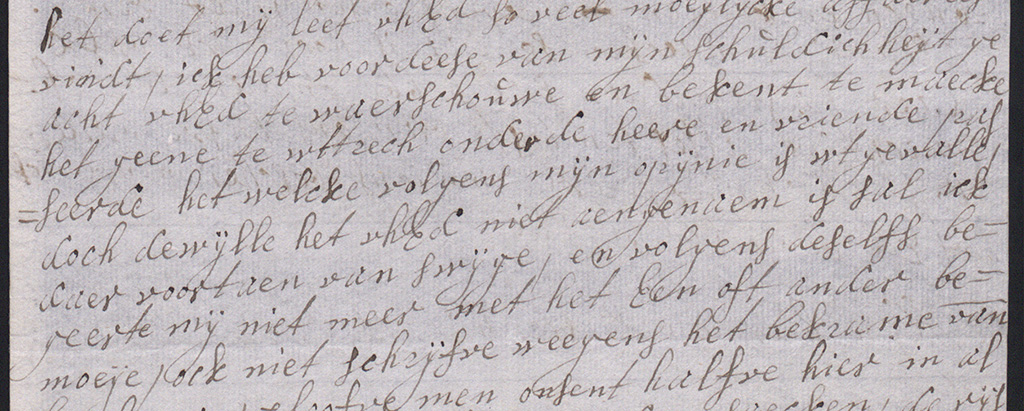 het doet mij leet vhEd so veel moeylycke affaeres
vindt, ick heb voordeese van mijn schuldichheyt ge
acht vhEd te waerschouwe en bekent te maecke
het geene te wttrech onder de heere en vriende pas
=seerde het welcke volgens mijn opijnie is wtgevalle,
doch dewijlle het vhEd niet aengenaem is sal ick
daer voortaen van swijge, en volgens deselfs be=
geerte mij niet meer met het Een oft ander be=
moeije, ock niet schrijfve weegens het bekrame van
men onsent halfve hier in al